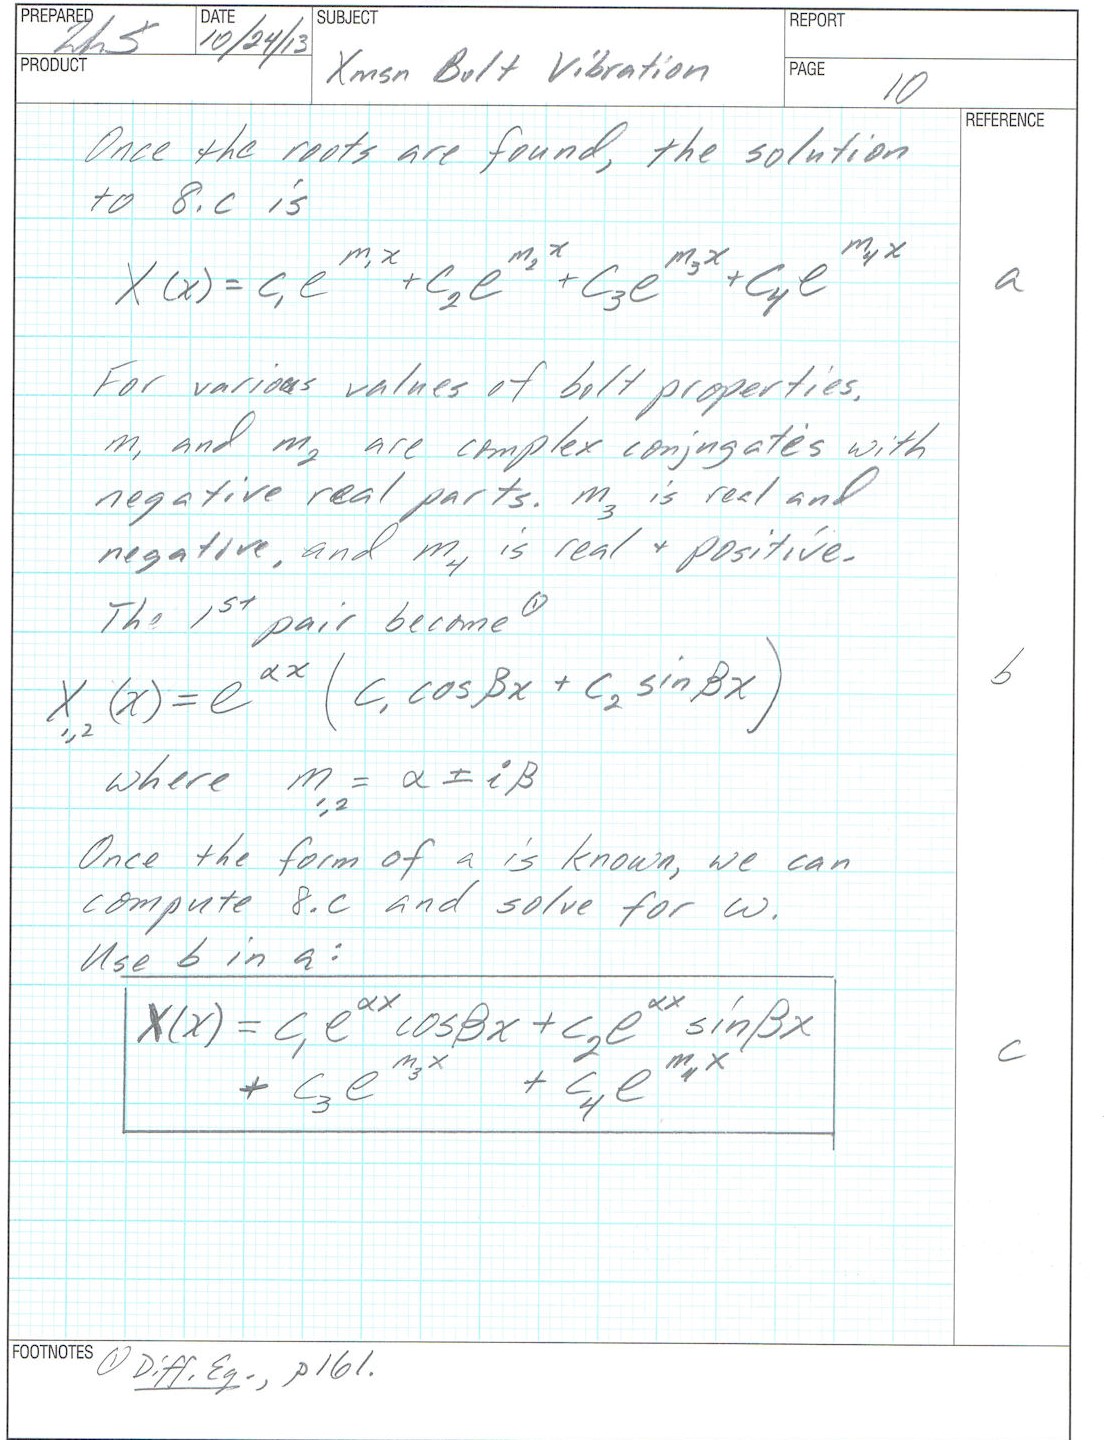 PREPARED
DATE 10/24/13
SUBJECT
Xmsn Bolt Vibration
REPORT
PRODUCT
PAGE 10
REFERENCE
Once the roots are found, the solution
to 8.c is
X(x) = c₁e^(m₁x) + c₂e^(m₂x) + c₃e^(m₃x) + c₄e^(m₄x) a
For various values of bolt properties,
m₁ and m₂ are complex conjugates with
negative real parts. m₃ is real and
negative, and m₄ is real + positive.
The 1st pair become ①
X₁,₂(x) = e^(αx) (c₁ cosβx + c₂ sinβx) b
where m₁,₂ = α ± iβ
Once the form of a is known, we can
compute 8.c and solve for ω.
Use b in a:
X(x) = c₁e^(αx) cosβx + c₂e^(αx) sinβx
+ c₃e^(m₃x) + c₄e^(m₄x) c
FOOTNOTES ① Diff. Eq., p161.